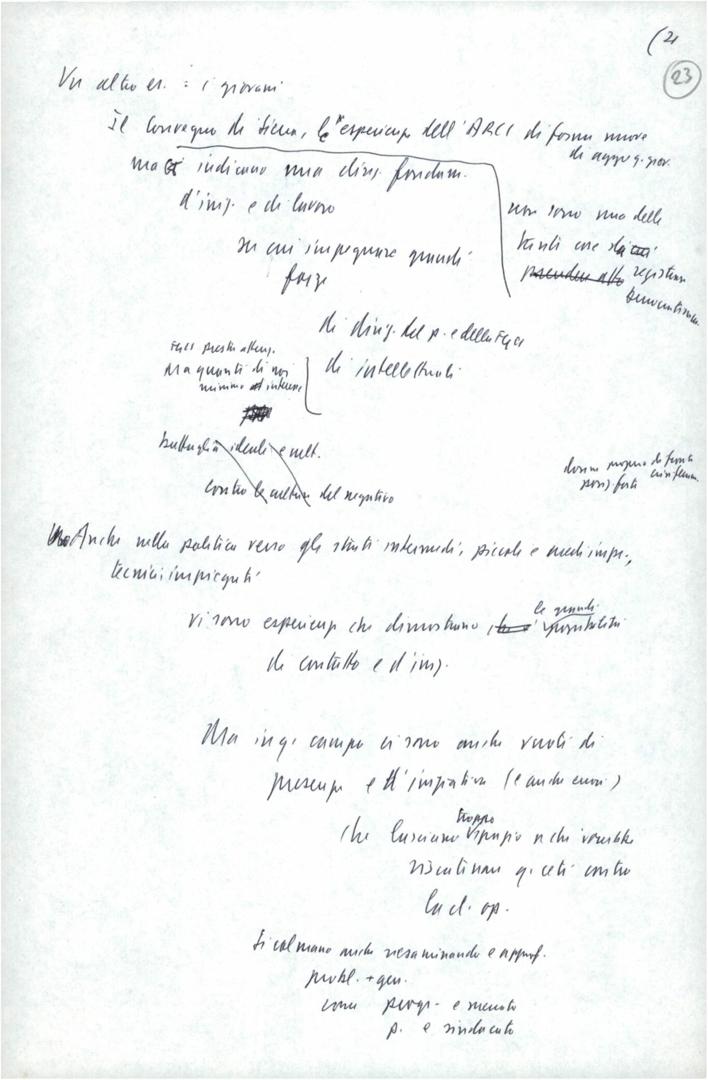 (21
23
Un altro es. : i giovani
Il Convegno di Siena, le esperienze dell'ARCI di forme nuove
di aggreg. giov.
ma indicano una direz. fondam.
d'iniz. e di lavoro
non sono una delle
tante cose da
registrare
su cui impegnare grandi
forze
di dirig. del p. e della FGCI
FGCI presta attenz.
ma quanti di noi
di intellettuali
battaglia ideale e cult.
contro le culture del negativo
di fronte
posiz. forti
Anche nella politica verso gli strati intermedi, piccole e medie impr.,
tecnici, impiegati
le grandi
vi sono esperienze che dimostrano possibilità
di contatto e d'iniz.
Ma in q. campo ci sono anche vuoti di
presenza e d'iniziativa (e anche errori)
troppo
che lasciano spazio a chi vorrebbe
q. ceti contro
la cl. op.
Si colmano anche riesaminando e approf.
probl. + gen.
come progr. e mercato
p. e sindacato